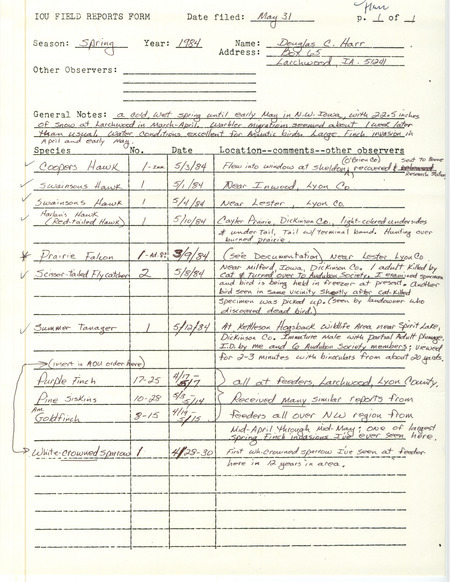 Harr
IOU FIELD REPORTS FORM Date filed: May 31 p. 1 of 1
Season: Spring Year: 1984 Name: Douglas C. Harr
Address: Box 65
Larchwood, IA. 51241
Other Observers:
General Notes: a cold, wet spring until early May in N.W. Iowa, with 22.5 inches
of snow at Larchwood in March-April. Warbler migration seemed about 1 week later
than usual. Water conditions excellent for aquatic birds. Large finch invasion in
April and early May.
Species No. Date Location--comments--other observers
Coopers Hawk 1 5/3/84 Flew into window at Sheldon (O'Brien Co) recovered &
Swainsons Hawk 1 5/1/84 Near Inwood, Lyon Co.
Swainsons Hawk 1 5/4/84 Near Lester, Lyon Co.
Harlan's Hawk
(Red-tailed Hawk) 1 5/10/84 Cayler Prairie, Dickinson Co., light-colored undersides
& under tail, Tail w/terminal band. Hunting over
burned prairie.
* Prairie Falcon 1-Ad. 3/9/84 (see Documentation) Near Lester, Lyon Co
Scissor-Tailed Flycatcher 2 5/8/84 Near Milford, Iowa, Dickinson Co. 1 adult killed by
cat & turned over to Audubon Society. I examined specimen
and bird is being held in freezer at present. Another
bird seen in same vicinity shortly after cat-killed
specimen was picked up. (seen by landowner who
discovered dead bird.)
Summer Tanager 1 5/12/84 At Kettleson Hogsback Wildlife Area near Spirit Lake,
Dickinson Co. Immature Male with partial adult plumage.
I.D. by me and 6 Audubon Society members; viewed
for 2-3 minutes with binoculars from about 20 yards.
(insert in AOU order here)
Purple Finch 17-25 4/7-5/7 all at feeders, Larchwood, Lyon County.
Pine Siskins 10-28 5/14 Received many similar reports from
Am.
Goldfinch 8-15 5/15 feeders all over NW region from
Mid-April through Mid-May; one of largest
spring finch invasions I've ever seen here.
White-crowned sparrow 1 4/28-30 First wh. crowned sparrow I've seen at feeder
here in 12 years in area.